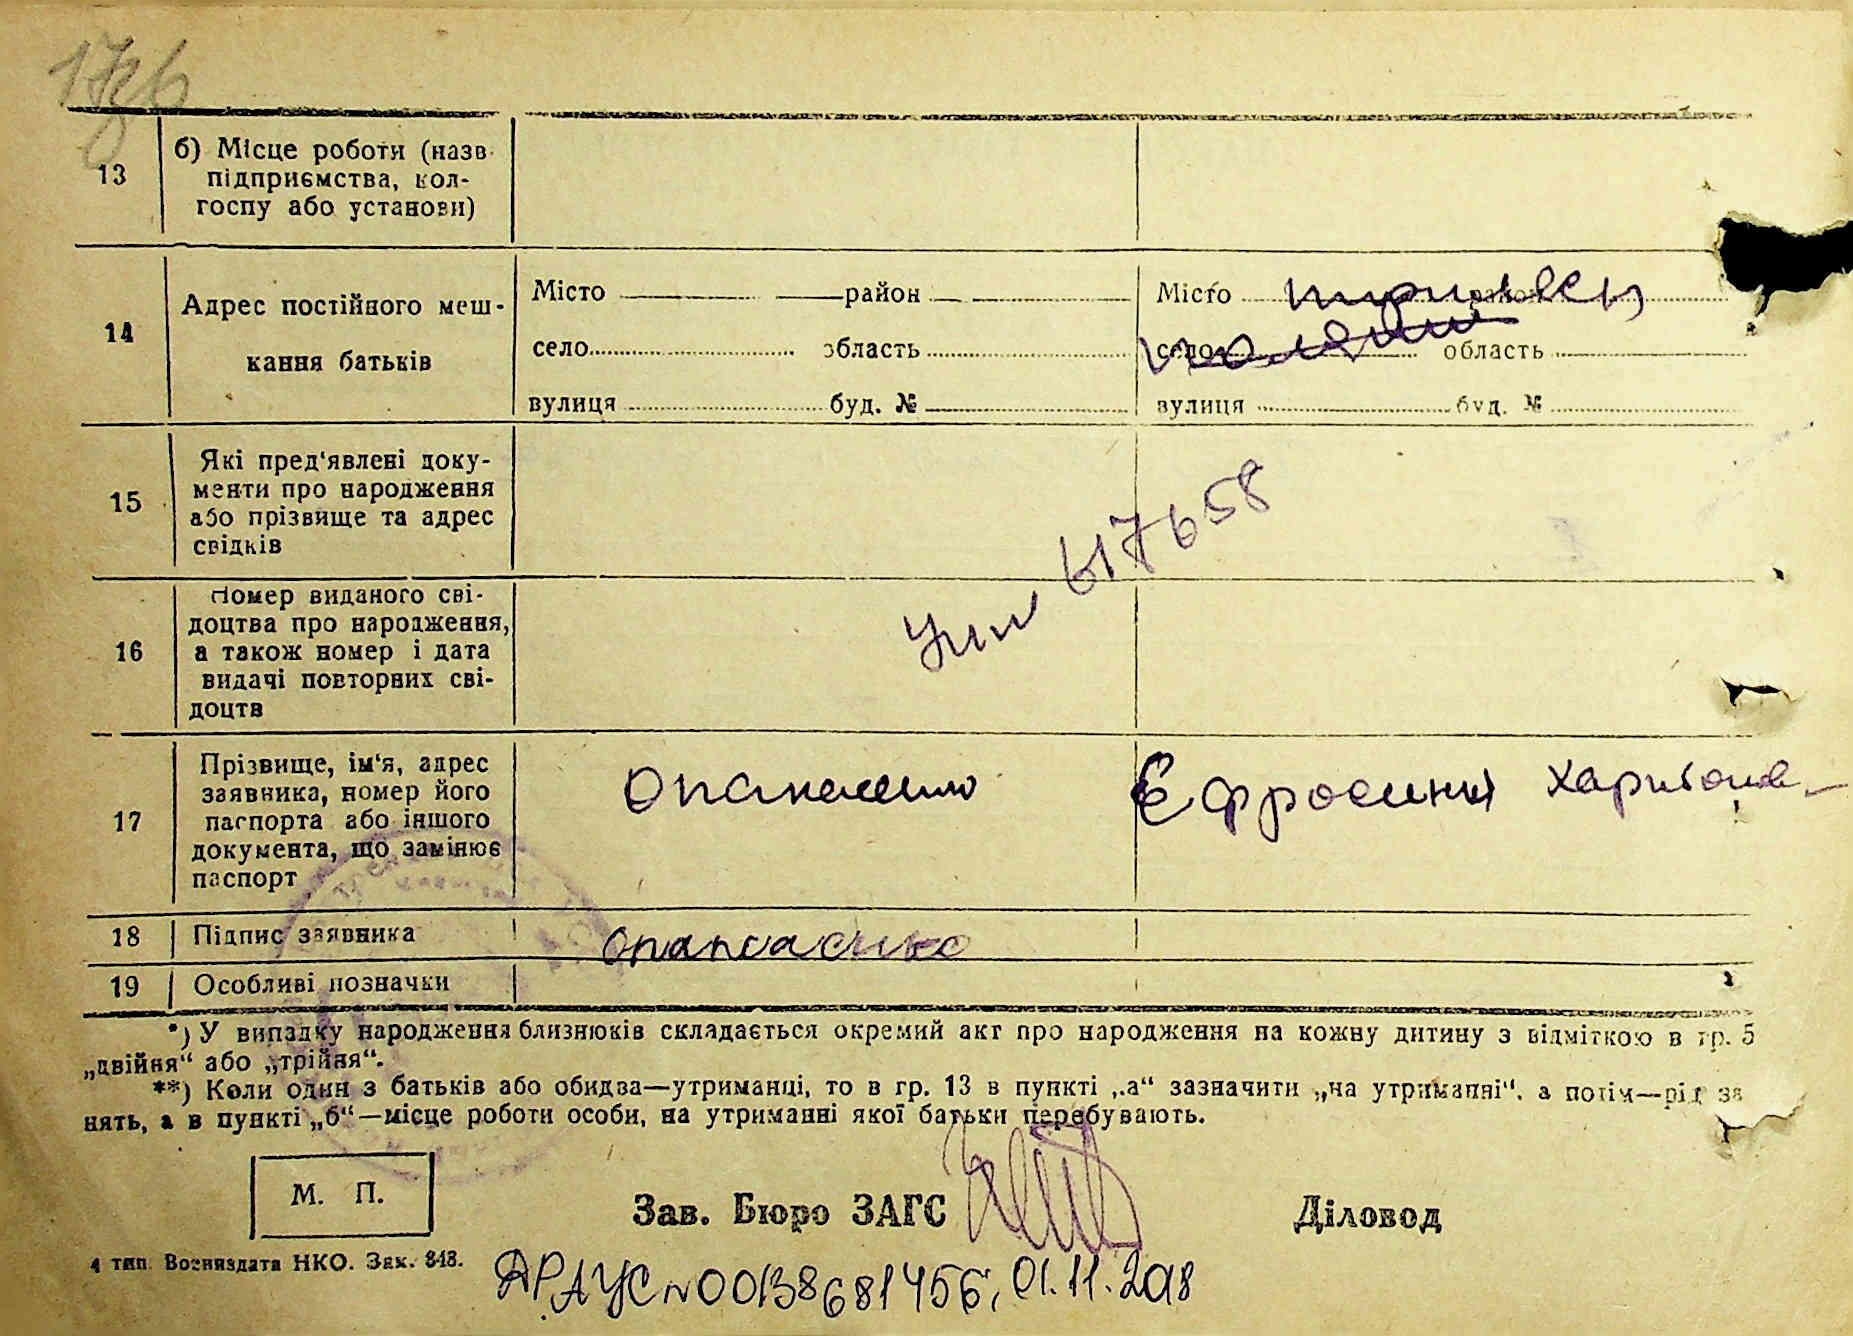 13
б) Місце роботи (назв
підприємства, кол-
госпу або установи)
14
Адрес постійного меш-
кання батьків
Місто район
село область
вулиця буд. №
Місто район
село область
вулиця буд. №
15
Які пред'явлені доку-
менти про народження
або прізвище та адрес
свідків
617658
16
Номер виданого сві-
доцтва про народження,
а також номер і дата
видачі повторних сві-
доцтв
17
Прізвище, ім'я, адрес
заявника, номер його
паспорта або іншого
документа, що замінює
паспорт
Опанасенко Ефросиния Харитонов-
18 Підпис заявника Опанасенко
19 Особливі позначки
*) У випадку народження близнюків складається окремий акт про народження на кожну дитину з відміткою в гр. 5
„двійня“ або „трійня“.
**) Коли один з батьків або обидва—утриманці, то в гр. 13 в пункті „а“ зазначити „на утриманні“, а потім—рід за
нять, а в пункті „б“—місце роботи особи, на утриманні якої батьки перебувають.
М. П.
Зав. Бюро ЗАГС
Діловод
4 тип. Воениздата НКО. Зак. 848.
ДРАЦС N00138681456, 01.11.2018